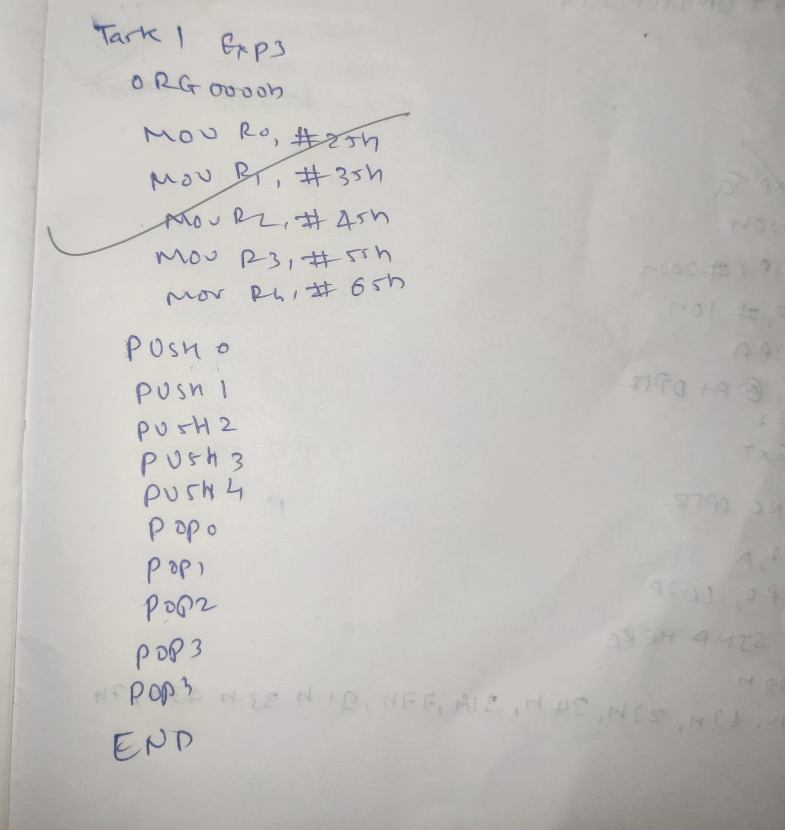 Task 1 Exp3
ORG 0000h
MOV R0, #25h
MOV R1, #35h
MOV R2, #45h
MOV R3, #55h
MOV R4, #65h
PUSH 0
PUSH 1
PUSH 2
PUSH 3
PUSH 4
POP 0
POP 1
POP 2
POP 3
POP 3
END